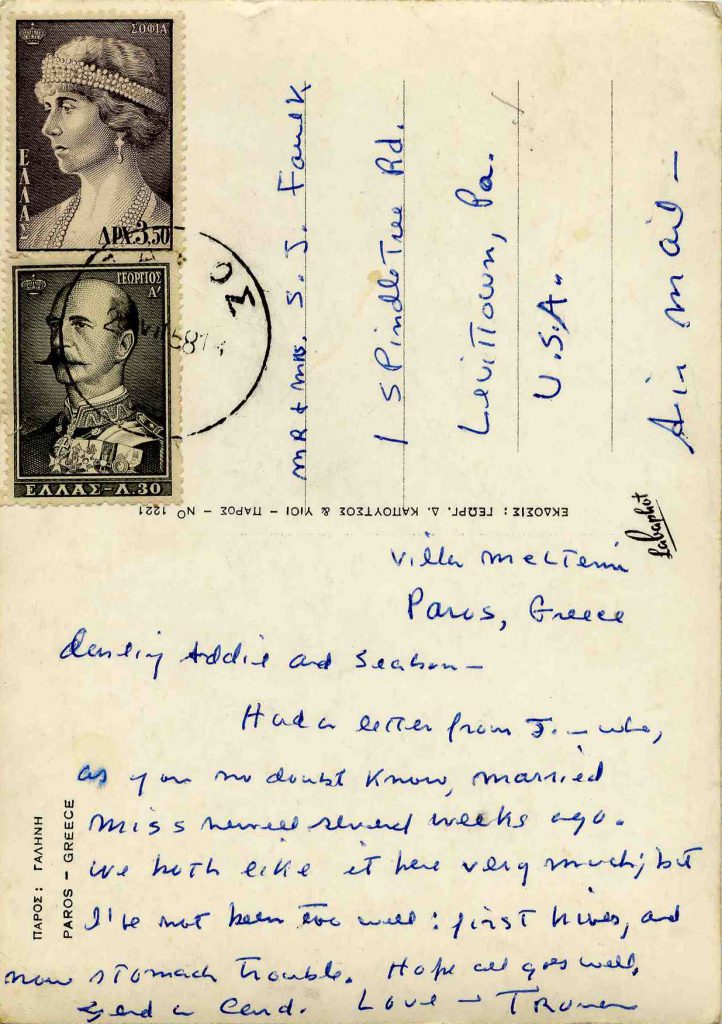 ΣΟΦΙΑ
ΕΛΛΑΣ
ΔΡΧ.3,50
ΓΕΩΡΓΙΟΣ
Α'
ΕΛΛΑΣ-Λ.30
ΟΣ
58
MR + MRS. S. J. Faulk
1 SPindleTree Rd.
LeviTTown, Pa.
U.S.A.
Air Mail —
ΕΚΔΟΣΙΣ: ΓΕΩΡΓ. Δ. ΚΑΠΟΥΤΣΟΣ & ΥΙΟΙ - ΠΑΡΟΣ - Νο 1221
Villa Meltemi
Paros, Greece
darling Addie and Seabon —
Had a letter from J. — who,
as you no doubt know, married
Miss several weeks ago.
We both like it here very much; but
I've not been too well: first hives, and
now stomach trouble. Hope all goes well,
Send a Card. Love — Truman
ΠΑΡΟΣ: ΓΑΛΗΝΗ
PAROS - GREECE